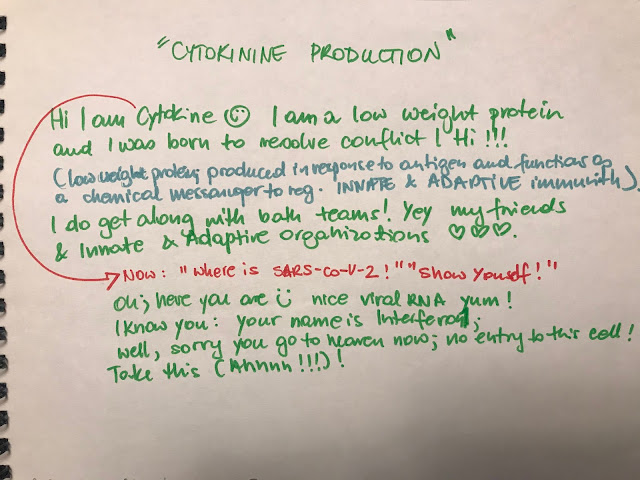 "CYTOKININE PRODUCTION"
Hi I am Cytokine ☺ I am a low weight protein
and I was born to resolve conflict! Hi!!!
(low weight protein; produced in response to antigen and functions as
a chemical messanger to reg. INNATE & ADAPTIVE immunith)
I do get along with both teams! Yey my friends
& Innate & Adaptive organizations ♡♡♡.
NOW: "Where is SARS-Co-V-2!" "Show Yourself!"
Oh; here you are ☺ nice viral RNA yum!
I know you: your name is Interferon;
well, sorry you go to heaven now; no entry to this cell!
Take this (Ahhhh!!!)!